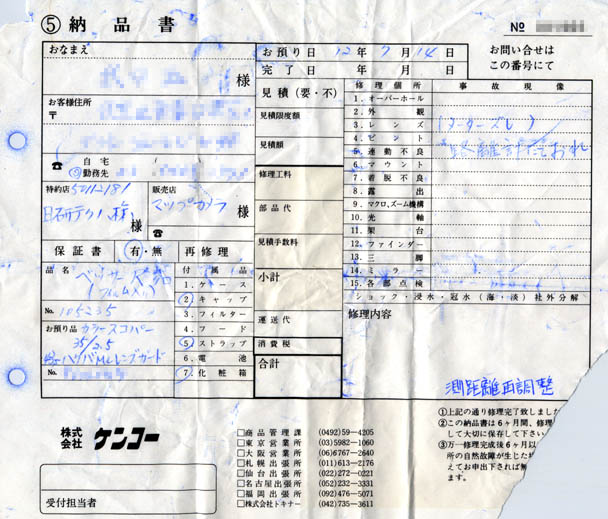 ⑤ 納品書
No
おなまえ
様
お預り日 12年7月14日
完了日 年 月 日
お問い合せは
この番号にて
お客様住所
〒
☎ 自宅
勤務先
特約店 販売店
日研テクノ 様
マップカメラ 様
☎
保証書 有・無 再修理
品名
No. 105235
お預り品 カラースコパー
35/2.5
No.
付属品
1. ケース
2. キャップ
3. フィルター
4. フード
5. ストラップ
6. 電池
7. 化粧箱
見積(要・不)
見積限度額
見積額
修理工料
部品代
見積手数料
小計
運送代
消費税
合計
修理個所 事故現像
1. オーバーホール
2. 外観
3. レンズ
4. ピント
5. 連動不良
6. マウント
7. 着脱不良
8. 露出
9. マクロ、ズーム機構
10. 光軸
11. 架台
12. ファインダー
13. 三脚
14. ミラー
15. 各部点検
ショック・浸水・冠水(海・淡)社外分解
修理内容
測距離再調整
株式
会社 ケンコー
受付担当者
□商品管理課 (0492)59−4205
□東京営業所 (03)5982−1060
□大阪営業所 (06)6767−2640
□札幌出張所 (011)613−2176
□仙台出張所 (022)272−0221
□名古屋出張所 (052)232−3331
□福岡出張所 (092)476−5071
□株式会社トキナー (042)735−3611
①上記の通り修理完了致しました
②この納品書は6ヶ月間、修理
して大切に保存して下さい
③万一修理完成後6ヶ月以
所の自然故障が生じた
えてお申出下されば無
ます。